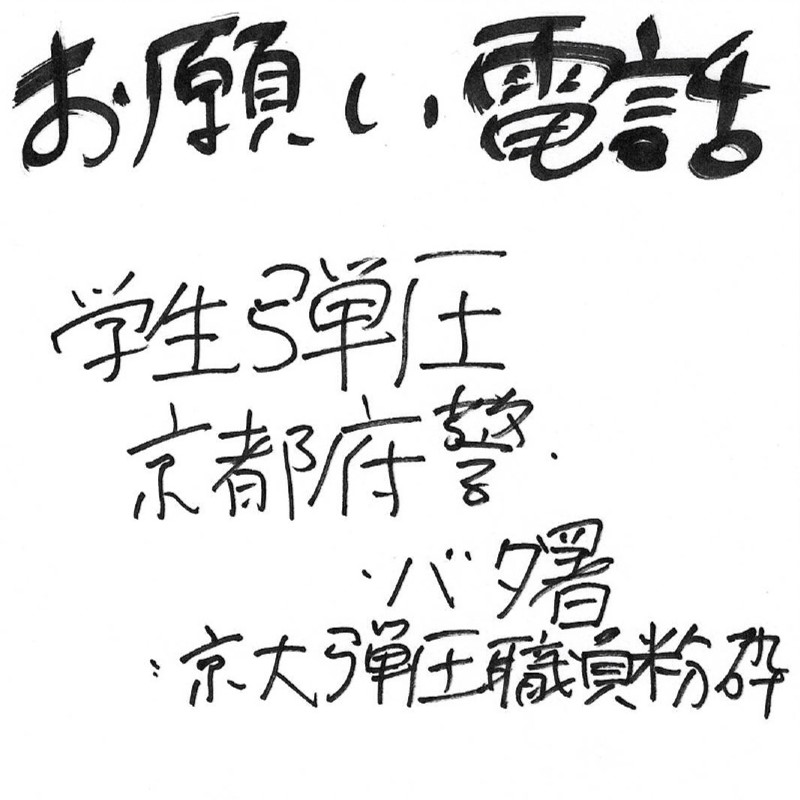 お願い電話
学生弾圧
京都府警
バタ署
京大弾圧職員粉砕